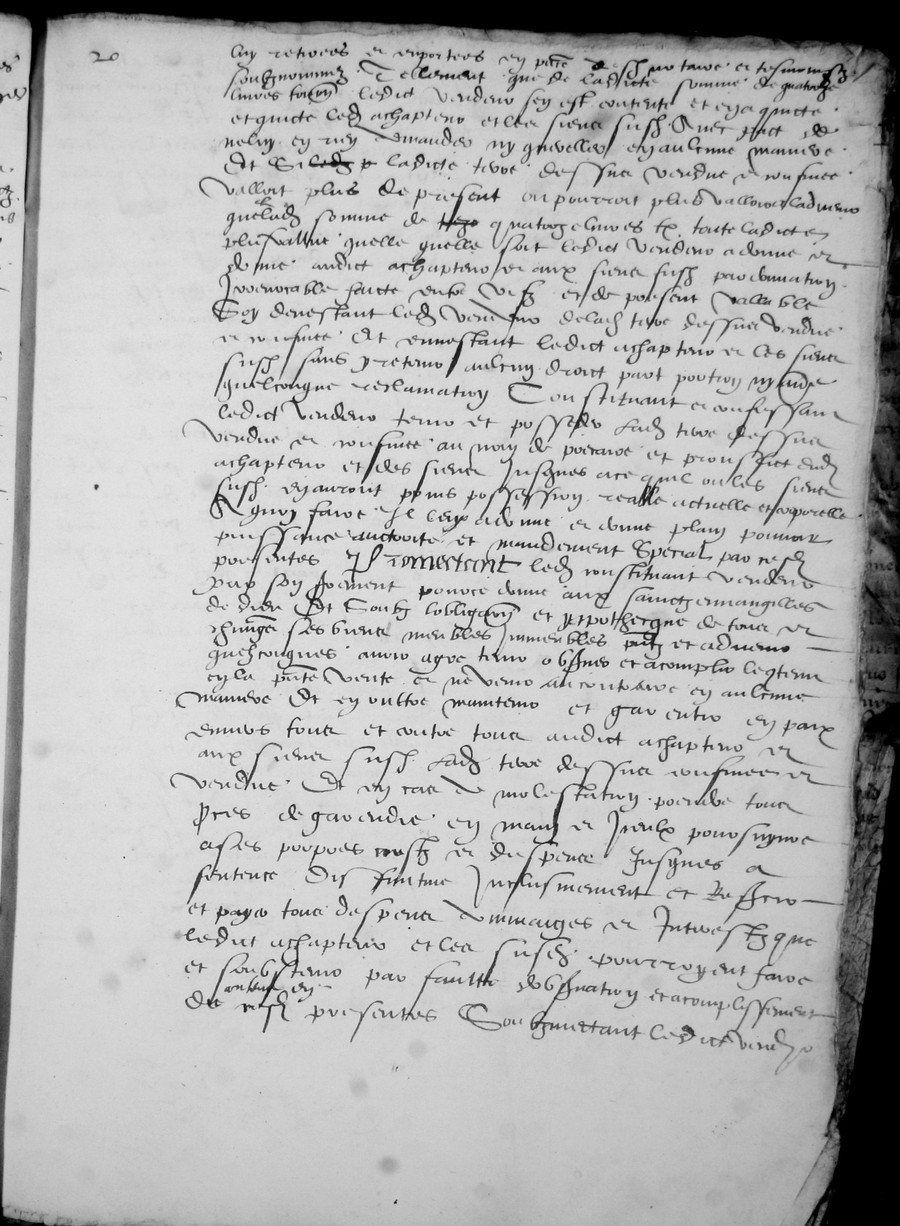 20
luy retirees et enportees en pnce de moy notaire et tesmoingz
soubznommez Tellement que de ladicte somme de quatorze
livres tourn ledict vendeur sen est contente et en a quicte
et quicte led achapteur et les siens susd Avec pact de
ne luy en rien demander ny quereller en aulcune maniere
Et Si ladicte terre dessus vendue et confinee
valloit plus de present ou pourroit plus valloir ladvenir
que lad somme de quatorze livres tz toute ladicte
plusvallue quelle quelle soit ledict vendeur a donne et
donne audict achapteur et aux siens susd par donnation
Irrevocable faicte entre vifz et de present vallable
Soy devestant led vendeur de lad terre dessus vendue
et confinee Et envestant ledict achapteur et les siens
susd sans y retenir aulcun droict part portion ny aultre
quelconque reclamation Constituant et confessant
ledict vendeur tenir et posseder lad terre dessus
vendue et confinee au nom de precaire et prouffict dud
achapteur et des siens Jusques a ce quil ou les siens
susd en auront prins possession realle actuelle et corporelle
A quoy faire Il leur a donne et donne plain pouvoir
puissance auctorite et mandement Special par cesd
presentes Promectant led constituant vendeur
par son serment preste aux sainctz evangilles
de dieu Et Soubz lobligaon et ypothecque de tous et
chungs ses biens meubles Immeubles pntz et advenir
quelzconques avoir agre tenir observer et acomplir le contenu
en la pnte vente et ne venir au contraire en aulcune
maniere Et en oultre maintenir et garentir en paix
envers tous et contre tous audict achapteur et
aux siens susd lad terre dessus confinee et
vendue Et en cas de molestation prendre tous
proces de garendie en main et Iceulx poursuyvre
a ses propres coustz et despens Jusques a
sentence Diffinitive Inclusivement et Reffaire
et payer tous despens dommaiges et Interestz que
ledict achapteur et les susd pourroyent faire
et soubstenir par faulte dobservation et acomplissement
du contenu en
cesd presentes Soubzmectant ledict vendr